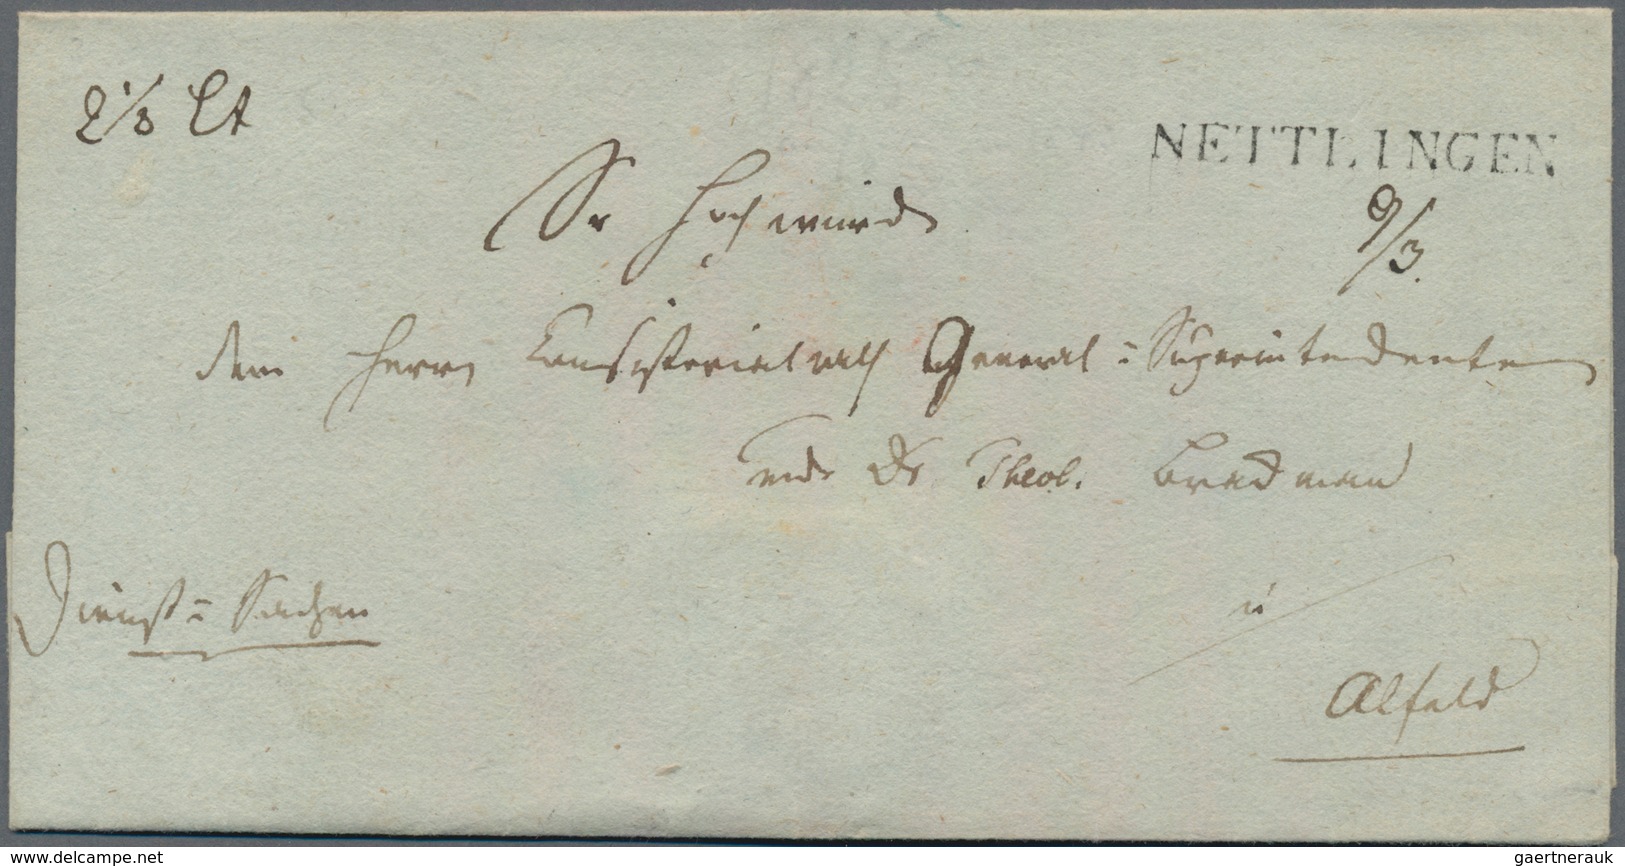 2 1/3 Lt
NETTLINGEN
9/3.
Sr Hochwürd
dem Herrn Consistorialrath General = Superintendenten
und Dr Theol.
Dienst = Sachen
in
Alfeld
www.delcampe.net
gaertnerauk